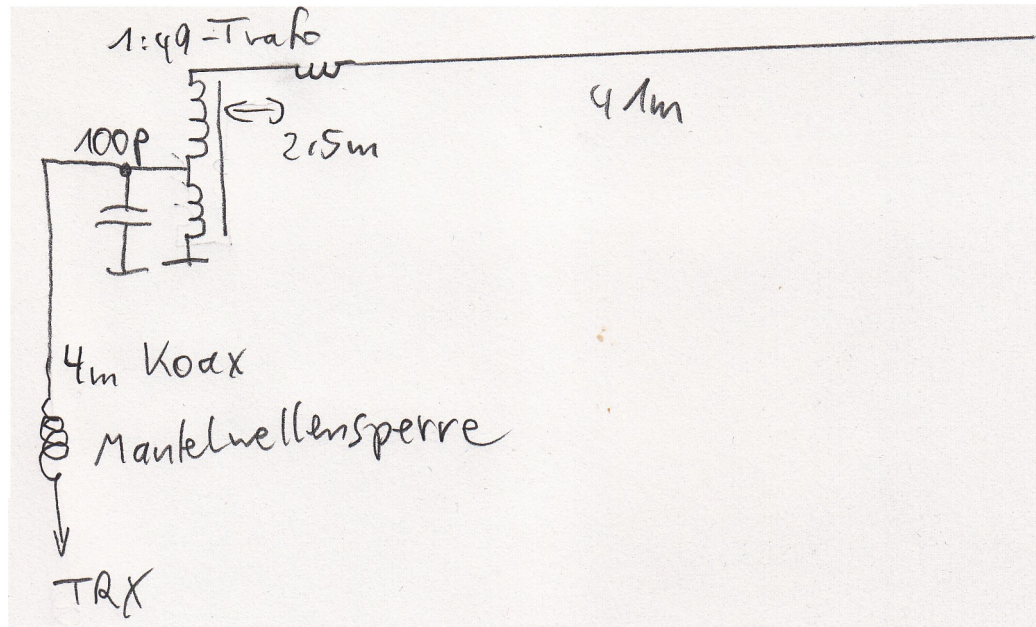 1:49-Trafo
41m
100p
2,5m
4m Koax
Mantelwellensperre
TRX